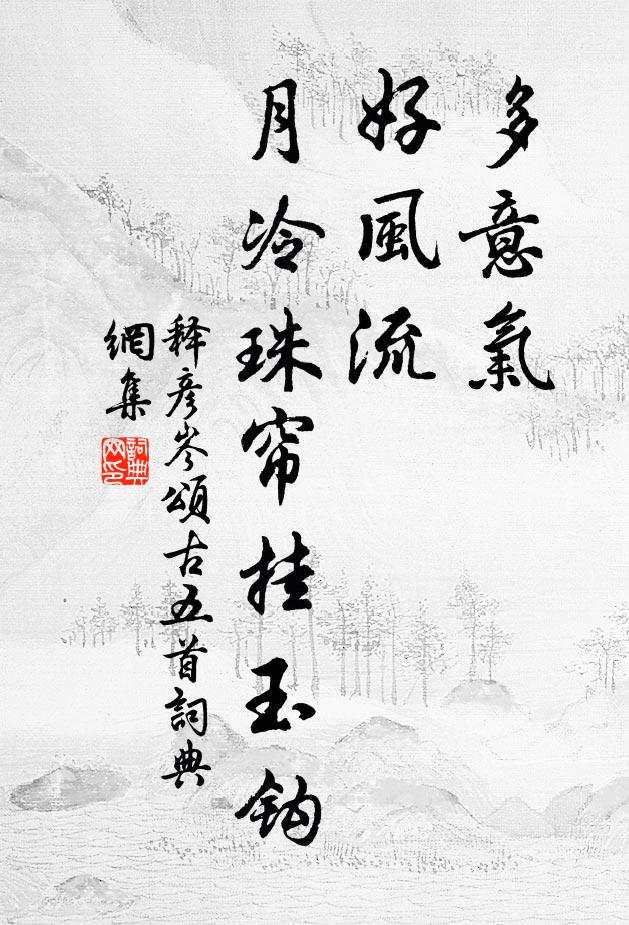 多意氣
好風流
月冷珠帘挂玉鈎
释彦岑頌古五首詞典
網集
詞典
网印